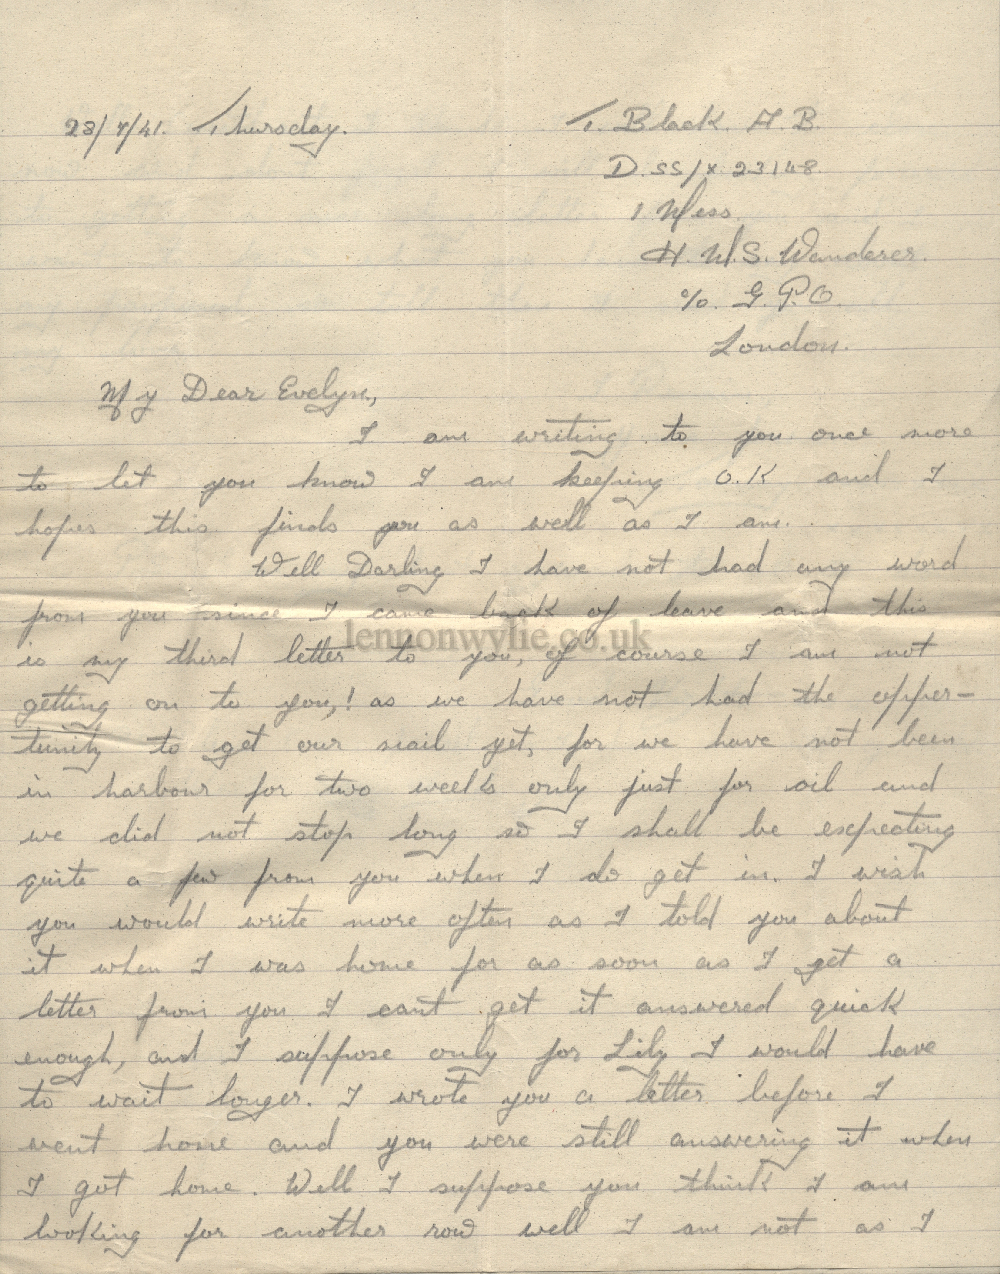 28/7/41. Thursday.
T. Black. A. B.
D. SS/X 23148
1 Mess.
H. M. S. Wanderer.
c/o. G. P. O.
London.
My Dear Evelyn,
I am writing to you once more
to let you know I am keeping O.K and I
hopes this finds you as well as I am.
Well Darling I have not had any word
from you since I came back of leave and this
lennonwylie.co.uk
is my third letter to you, of course I am not
getting on to you,! as we have not had the opper-
tunity to get our mail yet, for we have not been
in harbour for two weeks only just for oil and
we did not stop long so I shall be expecting
quite a few from you when I do get in. I wish
you would write more often as I told you about
it when I was home for as soon as I get a
letter from you I cant get it answered quick
enough, and I suppose only for Lily I would have
to wait longer. I wrote you a letter before I
went home and you were still answering it when
I got home. Well I suppose you think I am
looking for another row well I am not as I